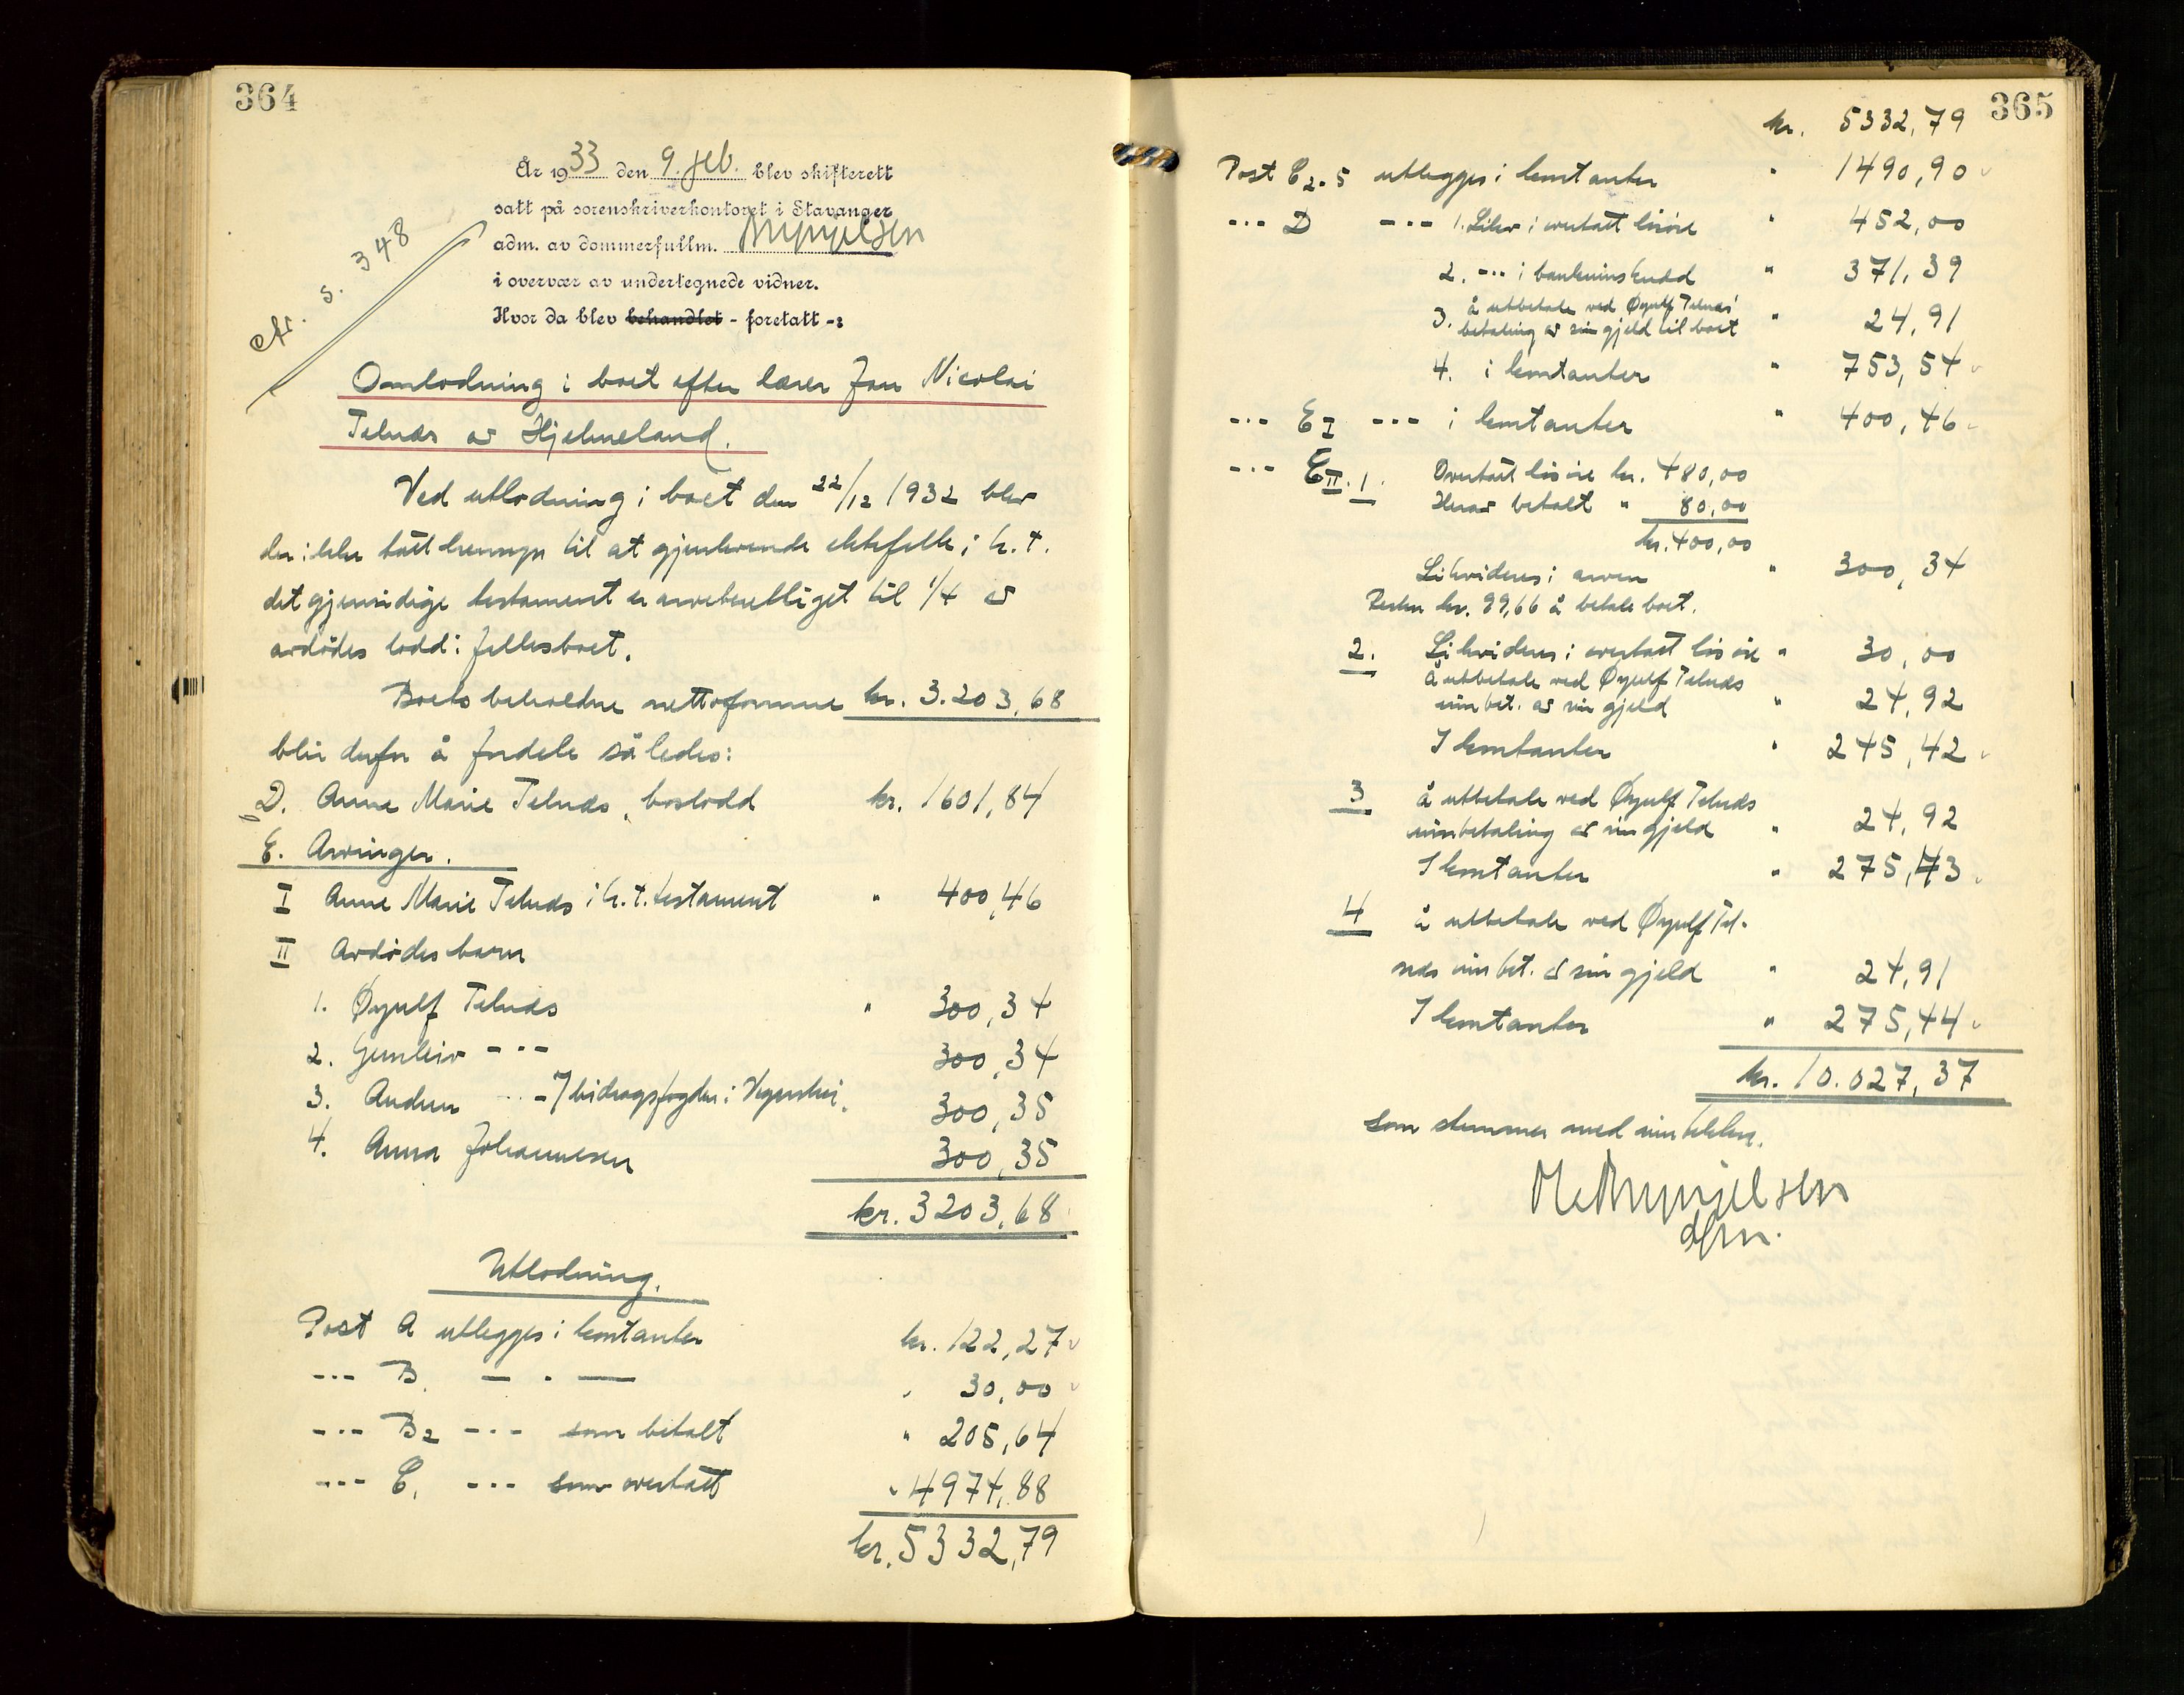 364
År 1933 den 9. feb. blev skifterett
satt på sorenskriverkontoret i Stavanger
adm. av dommerfullm. Brynjelsen
i overvær av undertegnede vidner.
Hvor da blev behandlet - foretatt -:
cfr. s. 348
Omlodning i boet efter lærer Jon Nicolai
Telnæs av Hjelmeland.
Ved utlodning i boet den 22/12 1932 blev
der ikke tatt hensyn til at gjenlevende ektefelle i h. t.
det gjensidige testament er arveberettiget til 1/4 av
avdødes lodd i fellesboet.
Boets beholdne nettoformue kr. 3.203,68
blir derfor å fordele således:
D. Anne Marie Telnæs, boslodd kr. 1601,84
E. Arvinger.
I Anne Marie Telnæs i h. t. testament " 400,46
II Avdødes barn
1. Øyulf Telnæs " 300,34
2. Gunleiv -"- 300,34
3. Andrea -"- 300,35
4. Anna Johannesen 300,35
kr. 3203,68
Utlodning.
Post A utlegges i kontanter kr. 122,27
-"- B. - " - " 30,00
-"- B2 -"- som betalt " 205,64
-"- C. -"- som overtatt " 4974,88
kr. 5332,79
365
kr. 5332,79
Post C2-5 utlegges i kontanter " 1490,90
-"- D -"- 1. Likv. i overtatt løsøre " 452,00
2. -"- i bankinnskudd " 371,39
3. å utbetale ved Øyulf Telnæs'
betaling av sin gjeld til boet " 24,91
4. i kontanter " 753,54
-"- E I -"- i kontanter " 400,46
-"- E II. 1. Overtatt løsøre kr. 480,00
Herav betalt " 80,00
kr. 400,00
Likvideres i arven " 300,34
Resten kr. 99,66 å betale boet.
2. Likvideres i overtatt løsøre " 30,00
å utbetale ved Øyulf Telnæs
innbet. av sin gjeld " 24,92
I kontanter " 245,42
3 å utbetale ved Øyulf Telnæs
innbetaling av sin gjeld " 24,92
I kontanter " 275,43
4 å utbetale ved Øyulf Tel-
næs innbet. av sin gjeld " 24,91
I kontanter " 275,44
kr. 10.027,37
som stemmer med inntekten.
Brynjelsen
dfm.